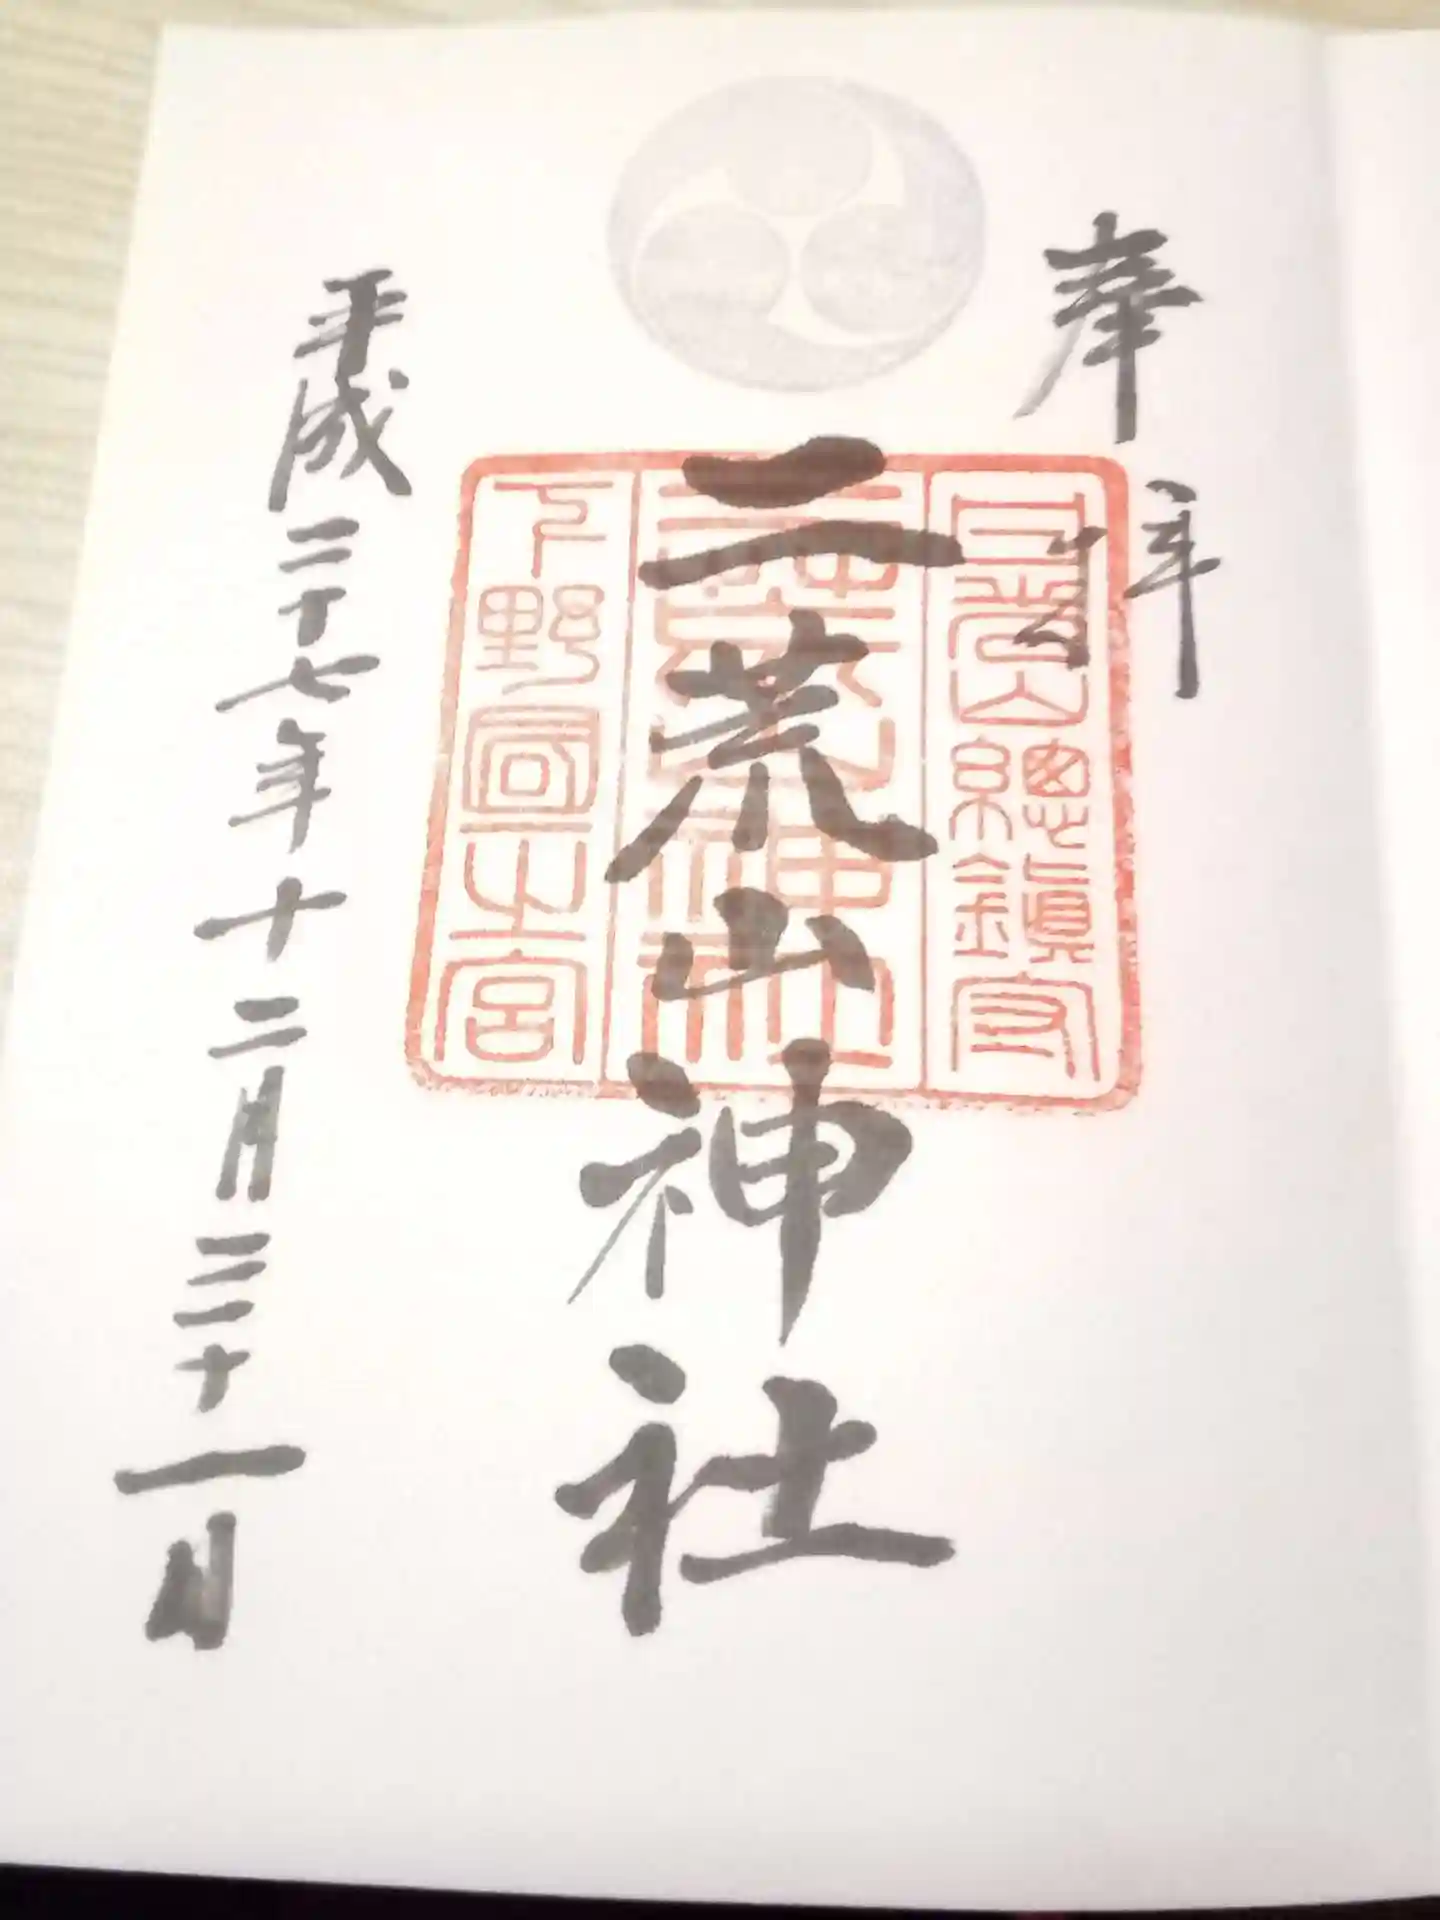 奉拝
日光山總鎮守
二荒山神社
下野國一之宮
平成二十七年十二月三十一日